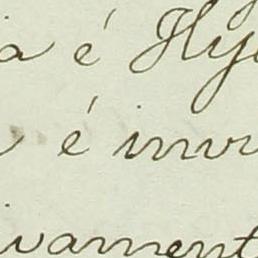 a é Hy
é inv
ivament